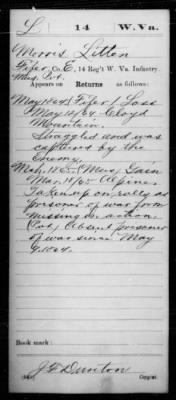 L 14 W.Va.
Morris Litten
Fifer, Co. E, 14 Reg't W. Va. Infantry.
Mus. Pvt.
Appears on Returns as follows:
May 1864 Fifer / Loss
May 12/64 Cloyd
Mountain.
Straggled and was
captured by the
enemy.
Mar. 1865 (Mus) Gain
Mar. 18/65 Alpine.
Taken up on rolls as
prisoner of war from
missing in action.
(Pvt) Absent prisoner
of war since May
9, 1864.
Book mark:
J F Dunton
Copyist.